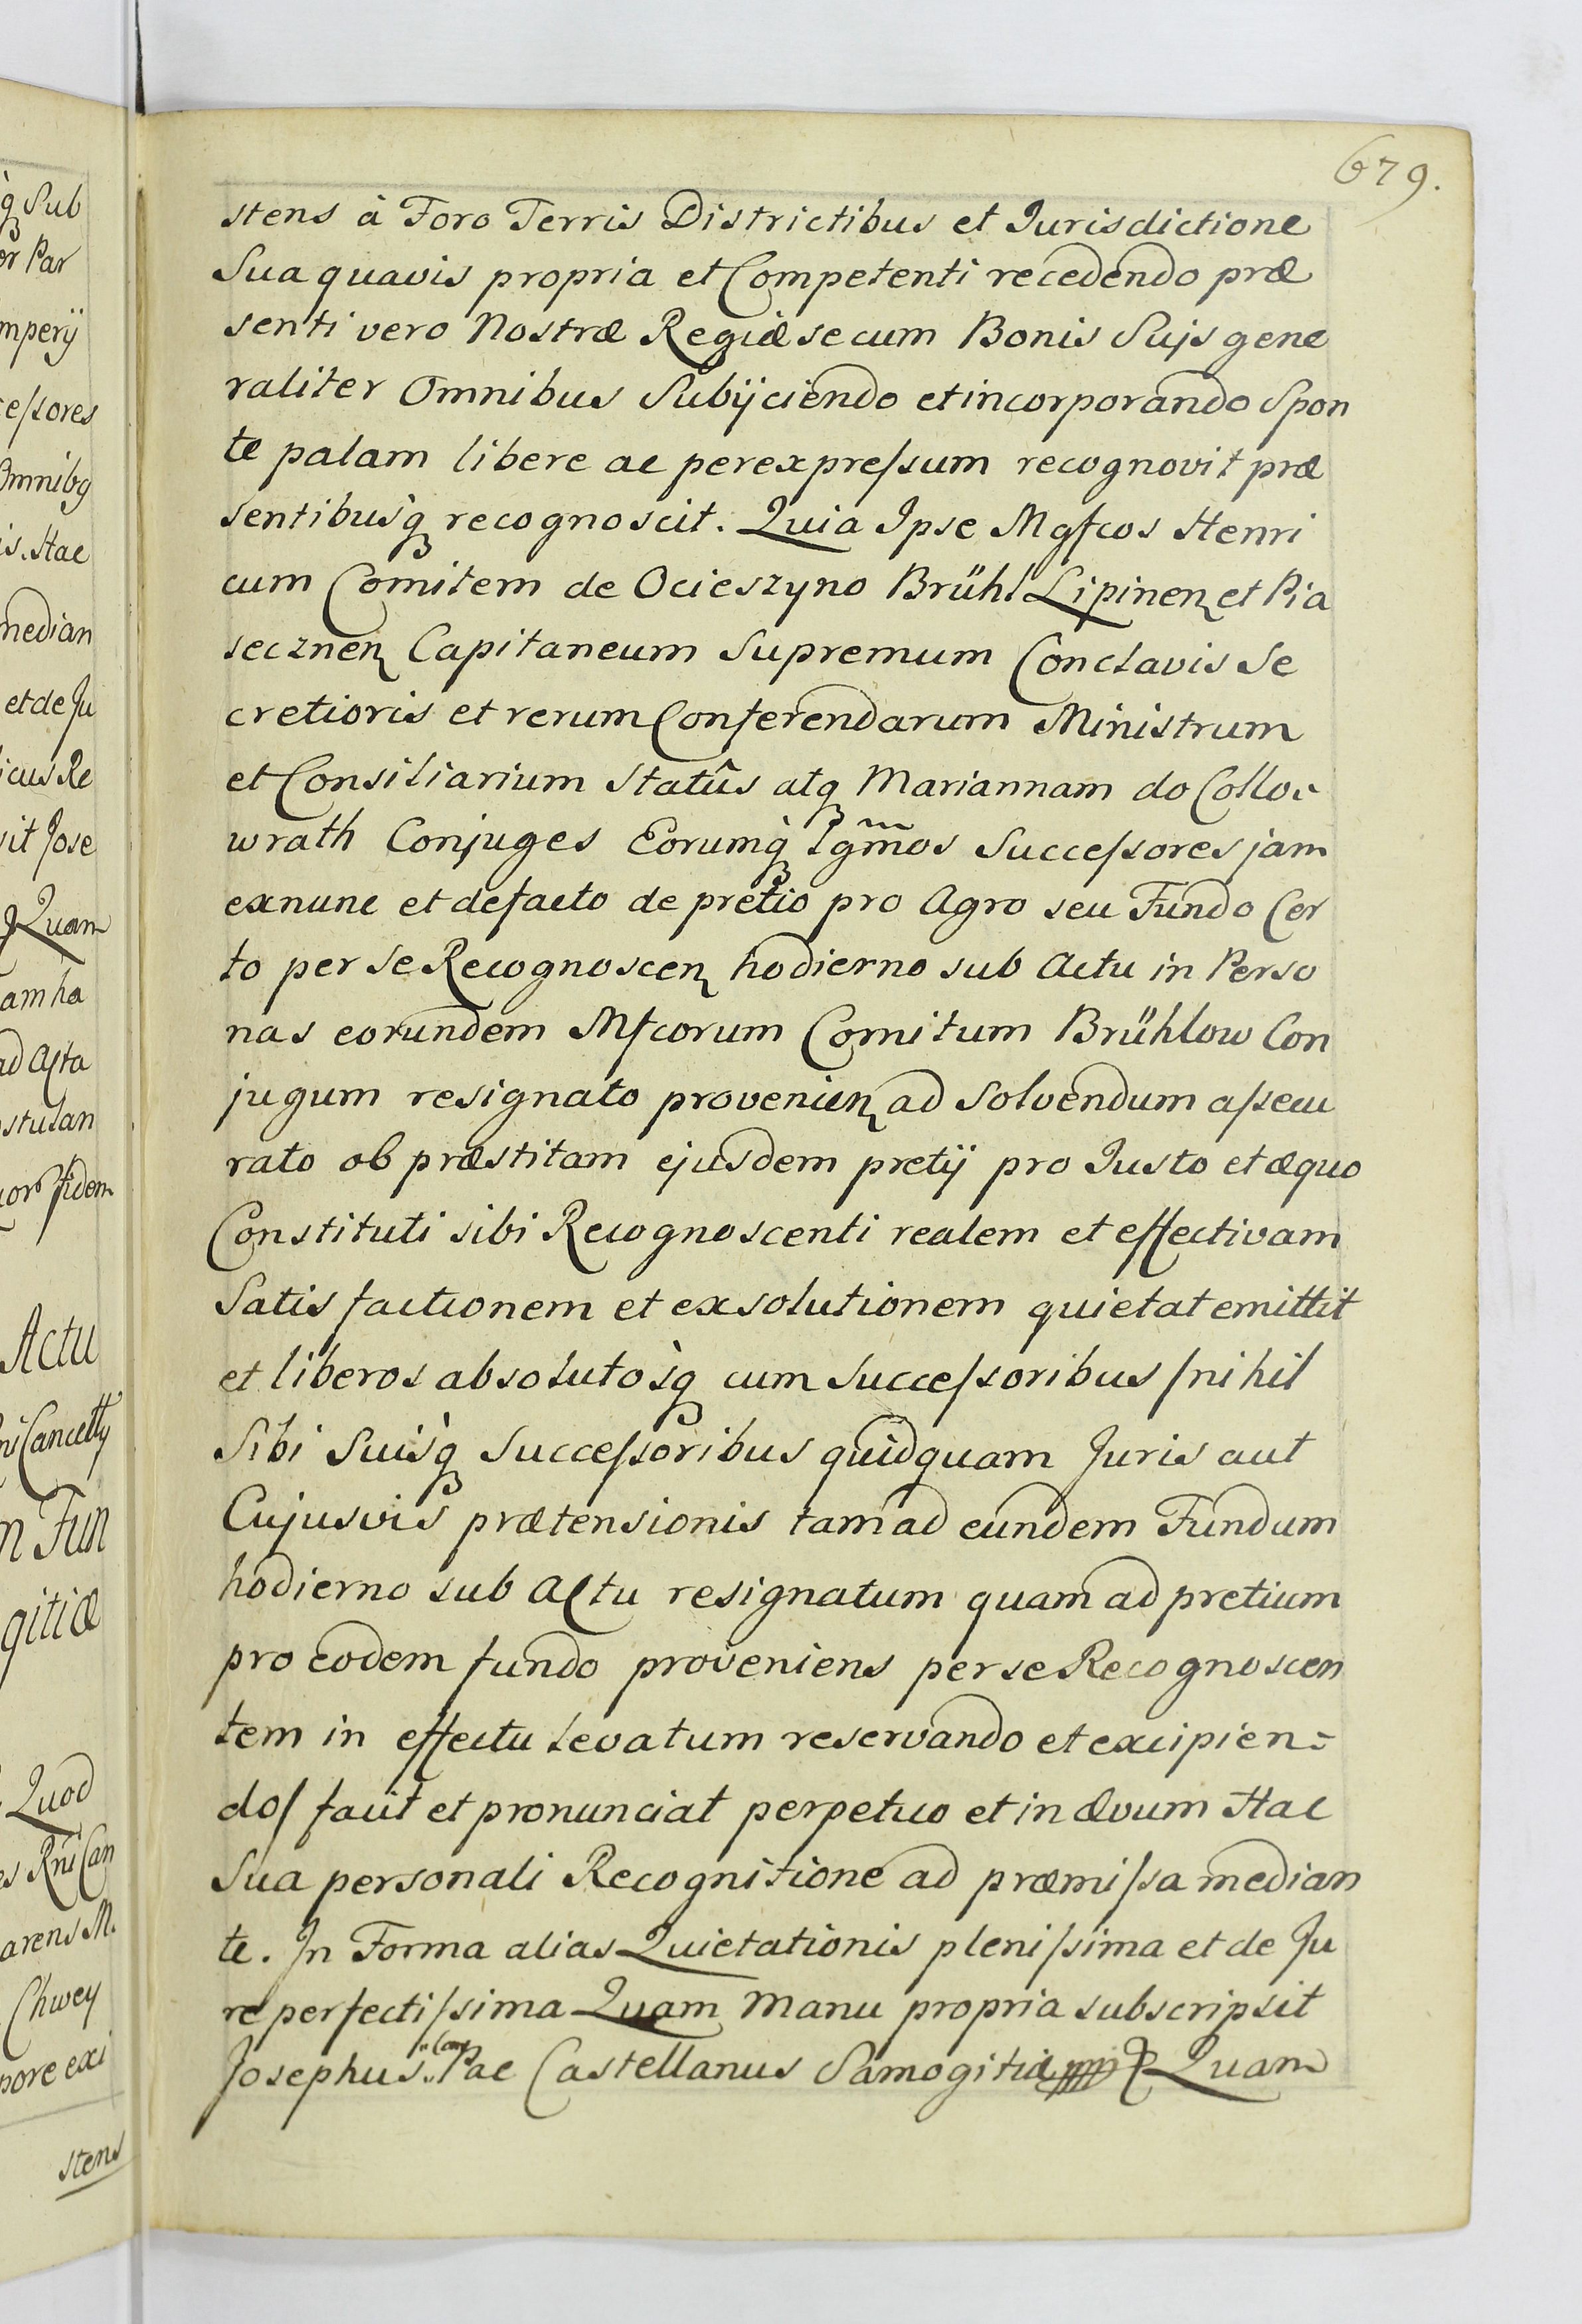 679.
stens à Foro Terris Districtibus et Jurisdictione
Sua quavis propria et Competenti recedendo præ
senti vero Nostræ Regiæ se cum Bonis Suis gene
raliter Omnibus Subijciendo et incorporando Spon
te palam libere ac perexpressum recognovit præ
sentibusq́ recognoscit. Quia Ipse Mgfcos Henri
cum Comitem de Ocieszyno Brühl Lipinen et Pia
secznen Capitaneum Supremum Conclavis Se
cretioris et rerum Conferendarum Ministrum
et Consiliarium Statûs atq Mariannam do Collo-
wrath Conjuges Eorumq́ Lgm̃os Successores jam
exnunc et defacto de pretio pro Agro seu Fundo Cer
to per se Recognoscen hodierno sub Actu in Perso
nas eorundem Mfcorum Comitum Brühlow Con
jugum resignato provenien ad Solvendum assecu
rato ob præstitam ejusdem pretij pro Justo et æquo
Constituti sibi Recognoscenti realem et effectivam
Satisfactionem et exsolutionem quietat emittit
et liberos absolutosq́ cum Successoribus /nihil
Sibi Suisq́ Successoribus quidquam Juris aut
Cujusvis prætensionis tam ad eundem Fundum
hodierno sub Actu resignatum quam ad pretium
pro eodem fundo proveniens per se Recognoscen
tem in effectu levatum reservando et excipien=
do/ facit et pronunciat perpetuo et in ævum Hac
Sua personali Recognitione ad præmissa median
te. In Forma alias Quietationis plenissima et de Ju
re perfectissima Quam Manu propria subscripsit
Josephus Pac Castellanus Samogitiæ Quam
q Sub
or Par
mperij
cessores
Omnibq
is. Hac
median
et de Ju
icus Re
vit Jose
Quam
am ha
ad Acta
stulan
Fidem
Actu
ni Cancell
m Fun
gitiæ
Quod
s Rni Can
arens M.
Chwey
pore exi
stens